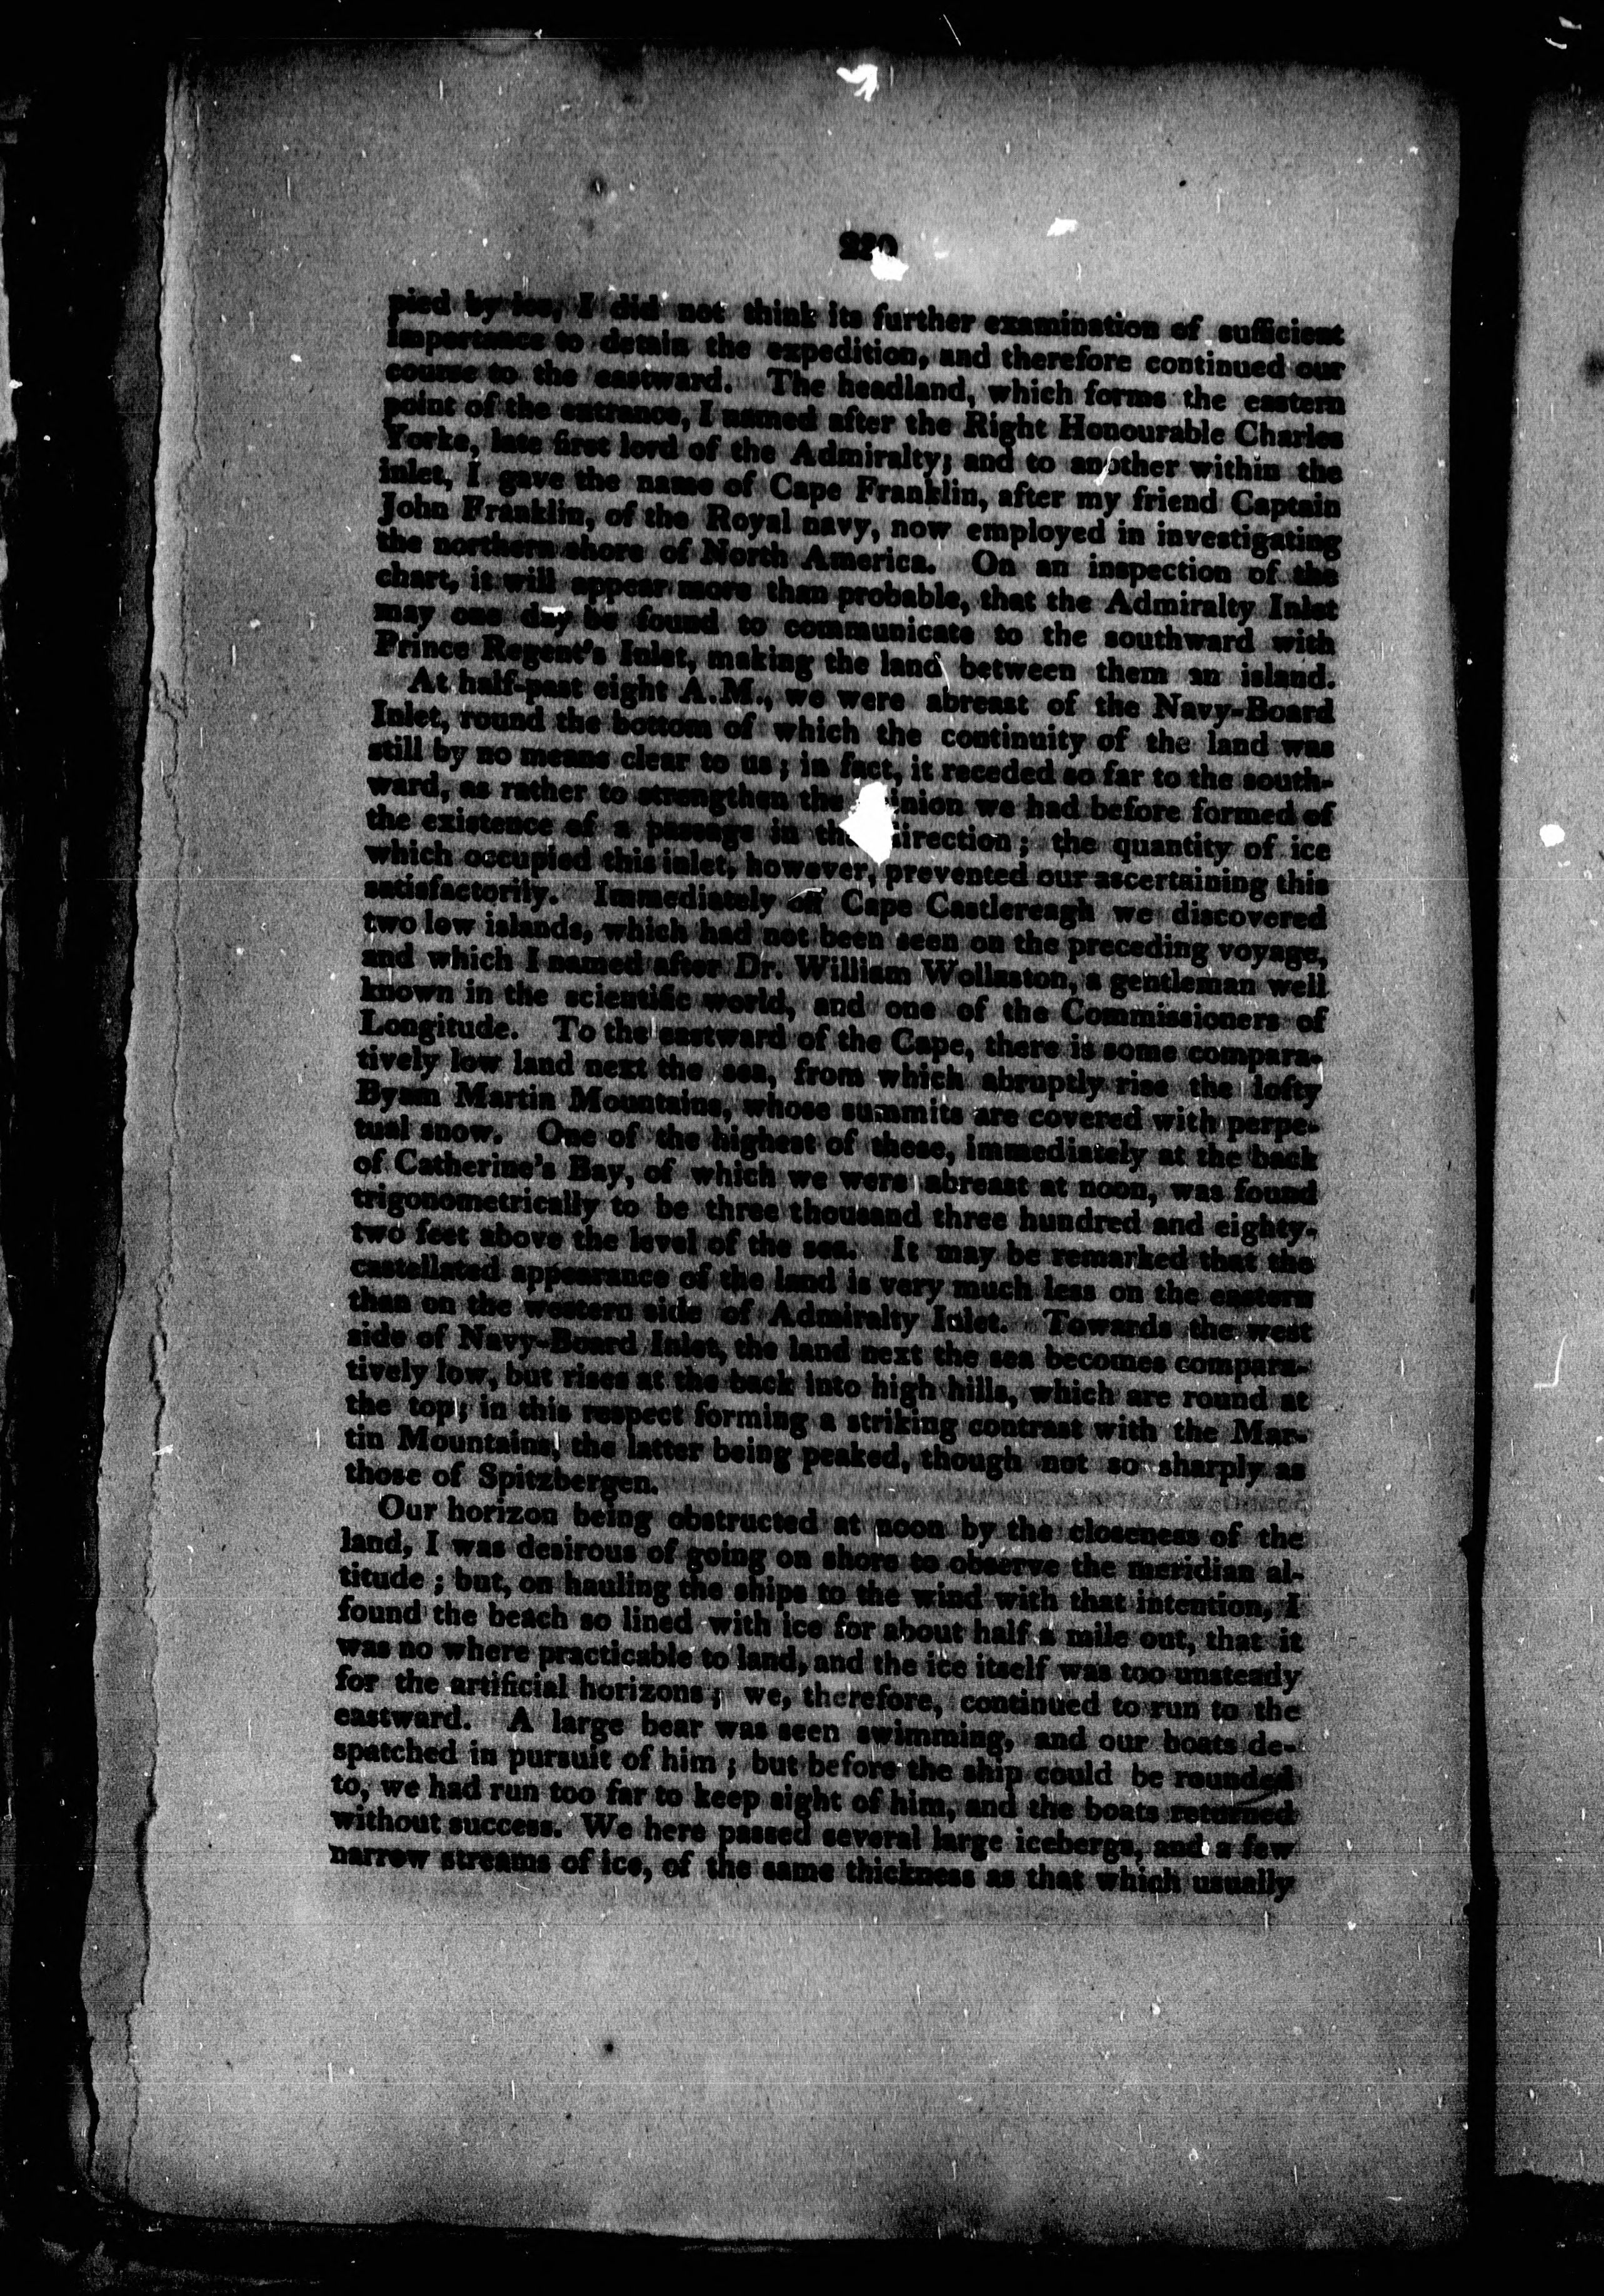 pied by ice, I did not think its further examination of sufficient
importance to detain the expedition, and therefore continued our
course to the eastward. The headland, which forms the eastern
point of the entrance, I named after the Right Honourable Charles
Yorke, late first lord of the Admiralty; and to another within the
inlet, I gave the name of Cape Franklin, after my friend Captain
John Franklin, of the Royal navy, now employed in investigating
the northern shore of North America. On an inspection of the
chart, it will appear more than probable, that the Admiralty Inlet
may one day be found to communicate to the southward with
Prince Regent's Inlet, making the land between them an island.
At half-past eight A.M., we were abreast of the Navy-Board
Inlet, round the bottom of which the continuity of the land was
still by no means clear to us; in fact, it receded so far to the south-
ward, as rather to strengthen the inion we had before formed of
the existence of a passage in th direction; the quantity of ice
which occupied this inlet, however, prevented our ascertaining this
satisfactorily. Immediately off Cape Castlereagh we discovered
two low islands, which had not been seen on the preceding voyage,
and which I named after Dr. William Wollaston, a gentleman well
known in the scientific world, and one of the Commissioners of
Longitude. To the eastward of the Cape, there is some compara-
tively low land next the sea, from which abruptly rise the lofty
Byam Martin Mountains, whose summits are covered with perpe-
tual snow. One of the highest of these, immediately at the back
of Catherine's Bay, of which we were abreast at noon, was found
trigonometrically to be three thousand three hundred and eighty-
two feet above the level of the sea. It may be remarked that the
castellated appearance of the land is very much less on the eastern
than on the western side of Admiralty Inlet. Towards the west
side of Navy-Board Inlet, the land next the sea becomes compara-
tively low, but rises at the back into high hills, which are round at
the top; in this respect forming a striking contrast with the Mar-
tin Mountains, the latter being peaked, though not so sharply as
those of Spitzbergen.
Our horizon being obstructed at noon by the closeness of the
land, I was desirous of going on shore to observe the meridian al-
titude; but, on hauling the ships to the wind with that intention, I
found the beach so lined with ice for about half a mile out, that it
was no where practicable to land, and the ice itself was too unsteady
for the artificial horizons; we, therefore, continued to run to the
eastward. A large bear was seen swimming, and our boats de-
spatched in pursuit of him; but before the ship could be rounded
to, we had run too far to keep sight of him, and the boats returned
without success. We here passed several large icebergs, and a few
narrow streams of ice, of the same thickness as that which usually